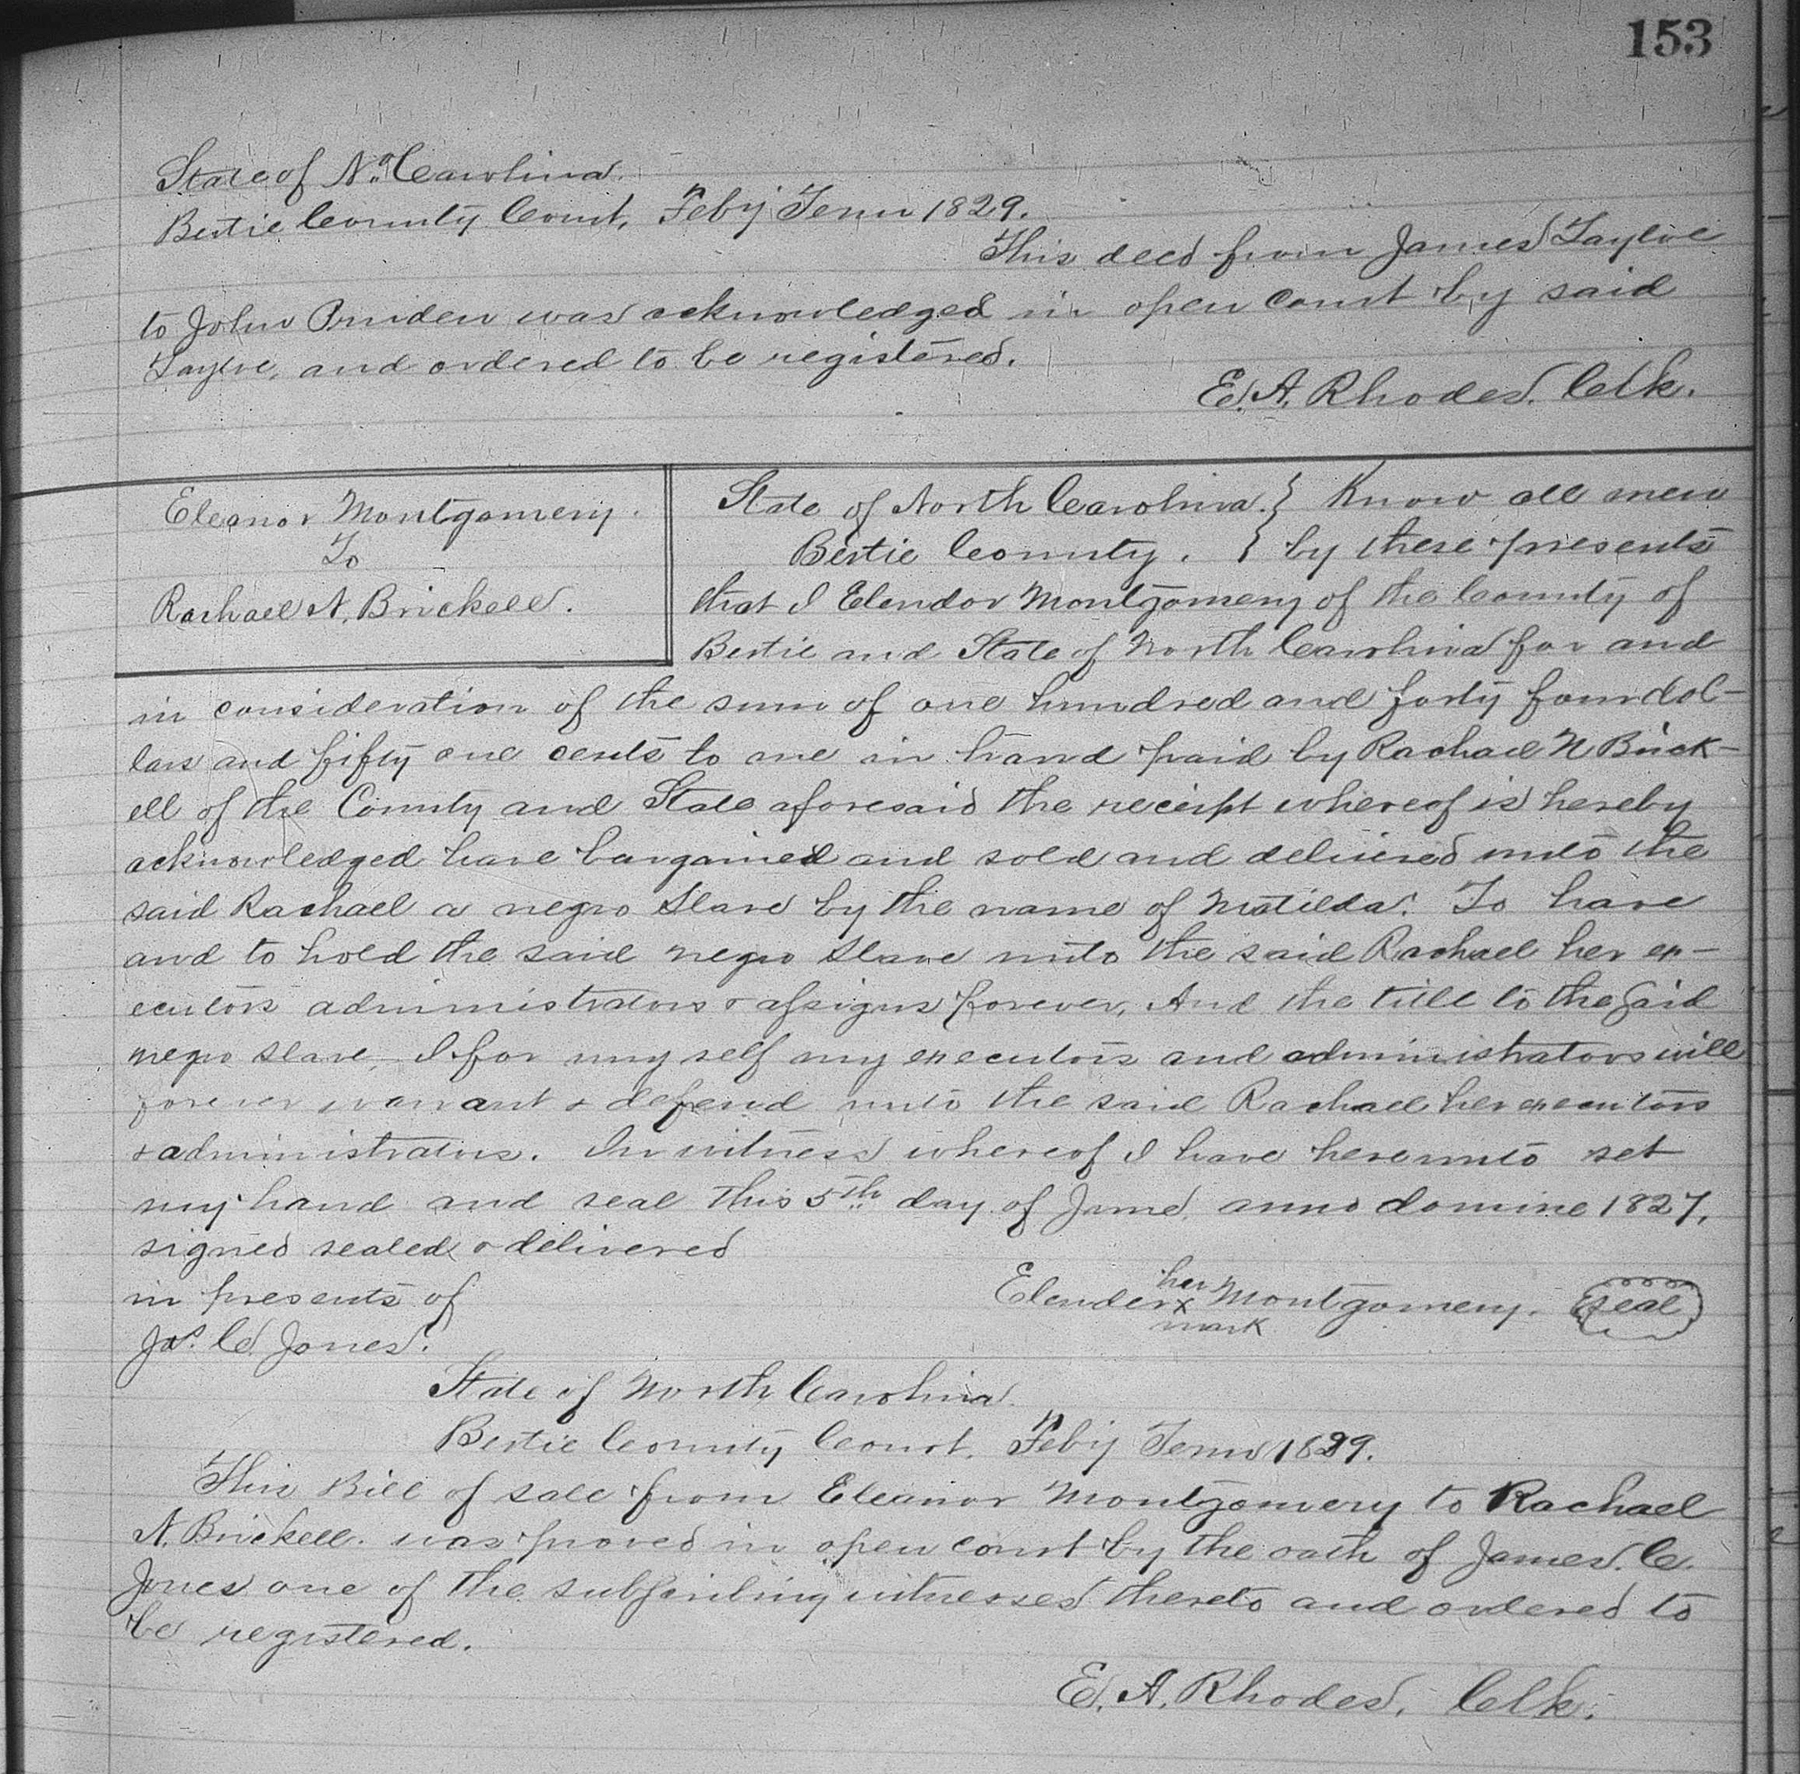 153
State of No. Carolina.
Bertie County Court, Feby Term 1829.
This deed from James Tayloe
to John Pruden was acknowledged in open court by said
Tayloe, and ordered to be registered.
E. A. Rhodes. Clk.
Eleanor Montgomery.
To
Rachael N. Brickell.
State of North Carolina. } Know all men
Bertie County. } by these presents
that I Elendor Montgomery of the County of
Bertie and State of North Carolina for and
in consideration of the sum of one hundred and forty four dol-
lars and fifty one cents to me in hand paid by Rachael N Brick-
ell of the County and State aforesaid the receipt whereof is hereby
acknowledged have bargained and sold and delivered unto the
said Rachael a negro Slave by the name of Matilda. To have
and to hold the said negro Slave unto the said Rachael her ex-
ecutors administrators & assigns forever, And the title to the said
negro slave, I for my self my executors and administrators will
forever warrant & defend unto the said Rachael her executors
& administrators. In witness whereof I have hereunto set
my hand and seal this 5th day of June anno domine 1827.
signed sealed & delivered
in presents of
Jas. C. Jones.
Elender her x mark Montgomery. seal
State of North Carolina.
Bertie County Court. Feby Term 1829.
This Bill of sale from Eleanor Montgomery to Rachael
N. Brickell. was proved in open court by the oath of James. C.
Jones one of the subscribing witnesses thereto and ordered to
be registered.
E. A. Rhodes, Clk.